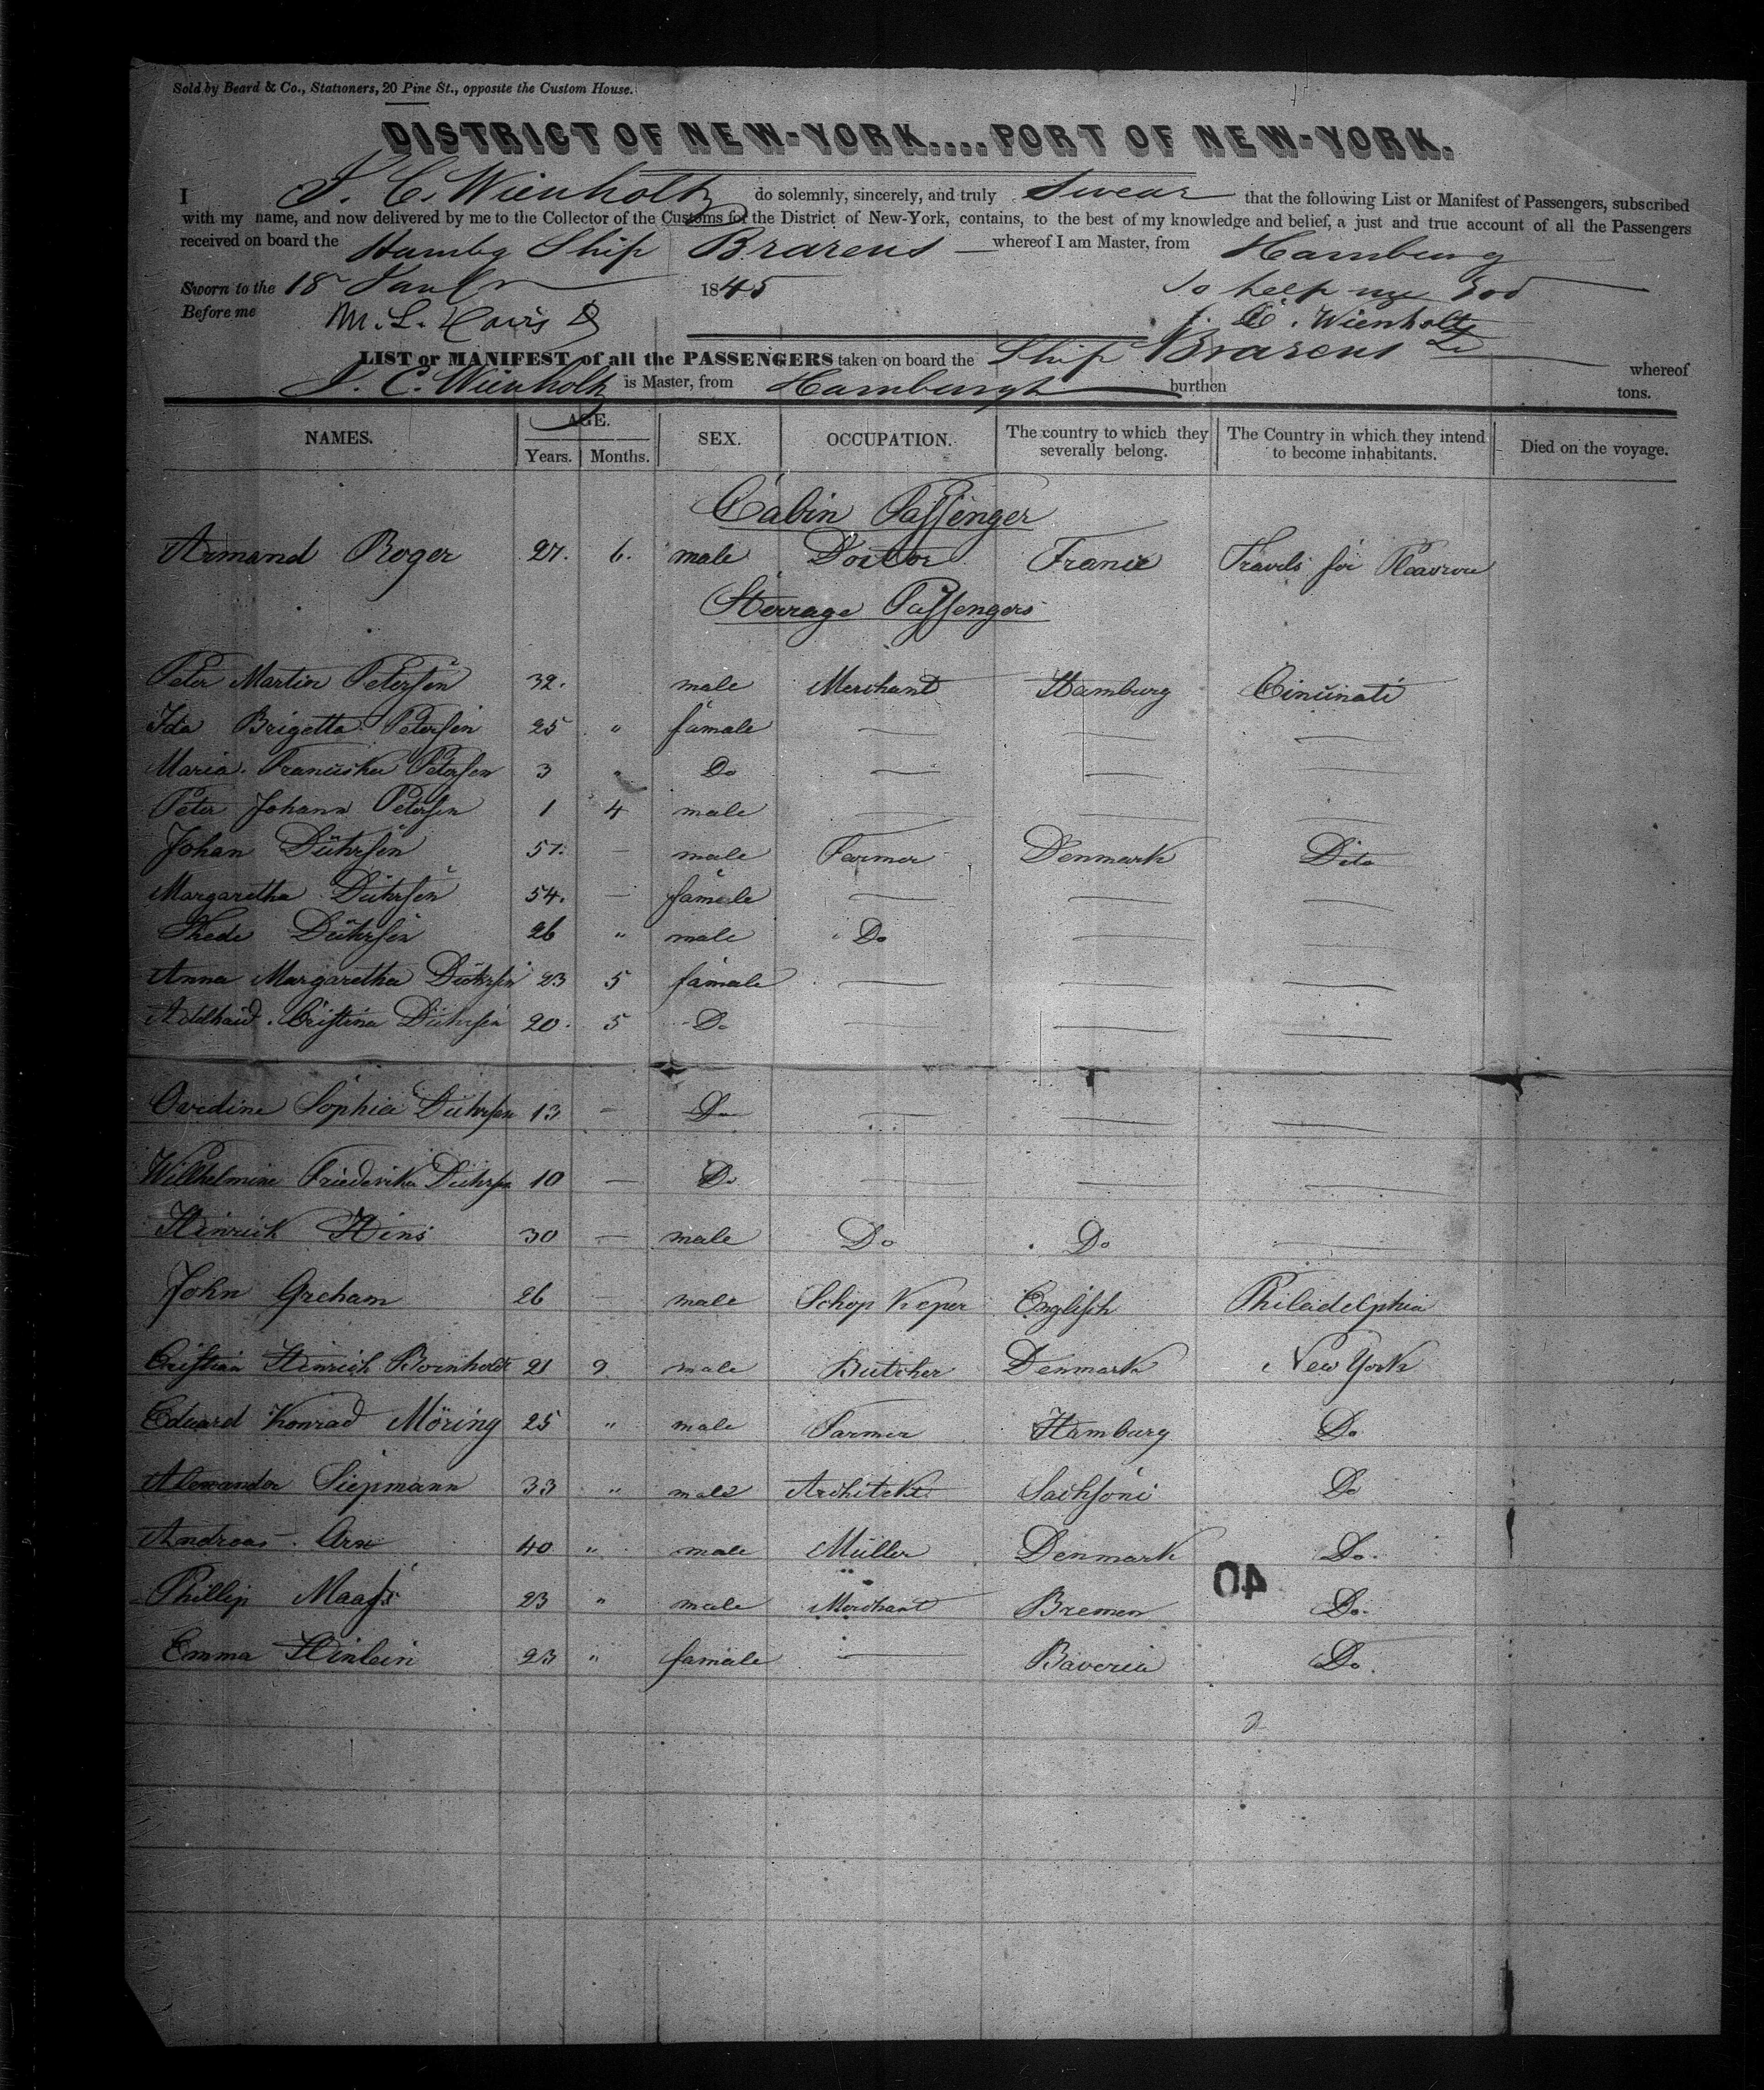 Sold by Beard & Co., Stationers, 20 Pine St., opposite the Custom House.
DISTRICT OF NEW-YORK....PORT OF NEW-YORK.
I J. C. Wienholtz do solemnly, sincerely, and truly Swear that the following List or Manifest of Passengers, subscribed
with my name, and now delivered by me to the Collector of the Customs for the District of New-York, contains, to the best of my knowledge and belief, a just and true account of all the Passengers
received on board the Hambg Ship Brarens whereof I am Master, from Hamburg
Sworn to the 18 1845 So help me God
Before me M. L. Davis J. C. Wienholtz
LIST or MANIFEST of all the PASSENGERS taken on board the Ship Brarens whereof
J. C. Wienholtz is Master, from Hamburgh burthen tons.
NAMES. AGE. Years. Months. SEX. OCCUPATION. The country to which they severally belong. The Country in which they intend to become inhabitants. Died on the voyage.
Cabin Passenger
Armand Roger 27. 6. male Doctor France Travels for
Sterrage Passengers
Peter Martin Petersen 32. male Merchant Hamburg Cincinati
Ida Brigetta Petersen 25 " famale
Maria Petersen 3 " Do
Peter Johann Petersen 1 4 male
Johan Dührsen 57. — male Farmer Denmark Dito
Margaretha Dührsen 54. — famale
Thede Dührsen 26 " male Do
Anna Margaretha Dührsen 23 5 famale
Adelhaid Cristina Dührsen 20. 5 Do
Sophia Dührsen 13 — Do
Willhelmine Friederika Dührsen 10 — Do
Hinrich Hins 30 — male Do Do
John Greham 26 — male Schop Keper Englisch Philadelphia
Cristian Hinrich Bornholdt 21 9 male Butcher Denmark New York
Eduard Konrad Möring 25 " male Farmer Hamburg Do
Alexander Siepmann 33 " male Architekt Sachsoni Do
Andreas 40 " male Müller Denmark Do.
Phillip Maass 23 " male Merchant Bremen Do.
Emma Hinlein 23 " famale Baveria Do.
40
2